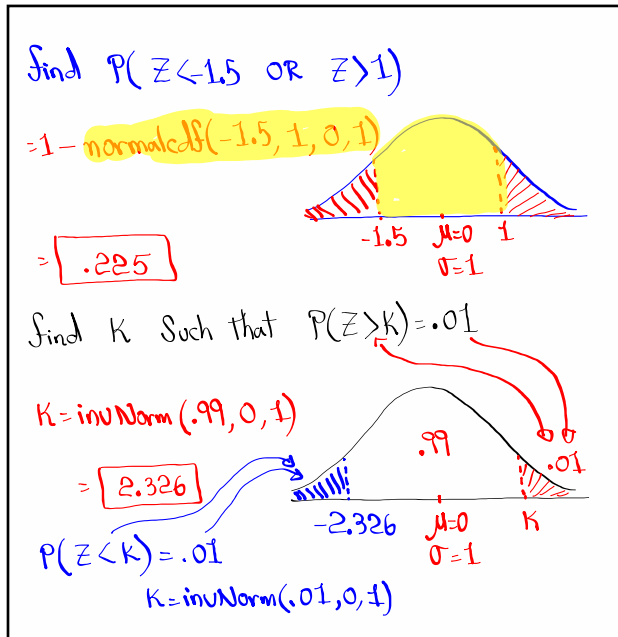 find P(Z<-1.5 OR Z>1)
=1-normalcdf(-1.5, 1, 0, 1)
-1.5 μ=0 1
σ=1
= .225
find K Such that P(Z>K)=.01
K=invNorm(.99, 0, 1)
.99 .01
= 2.326
-2.326 μ=0 K
σ=1
P(Z<K)=.01
K=invNorm(.01, 0, 1)